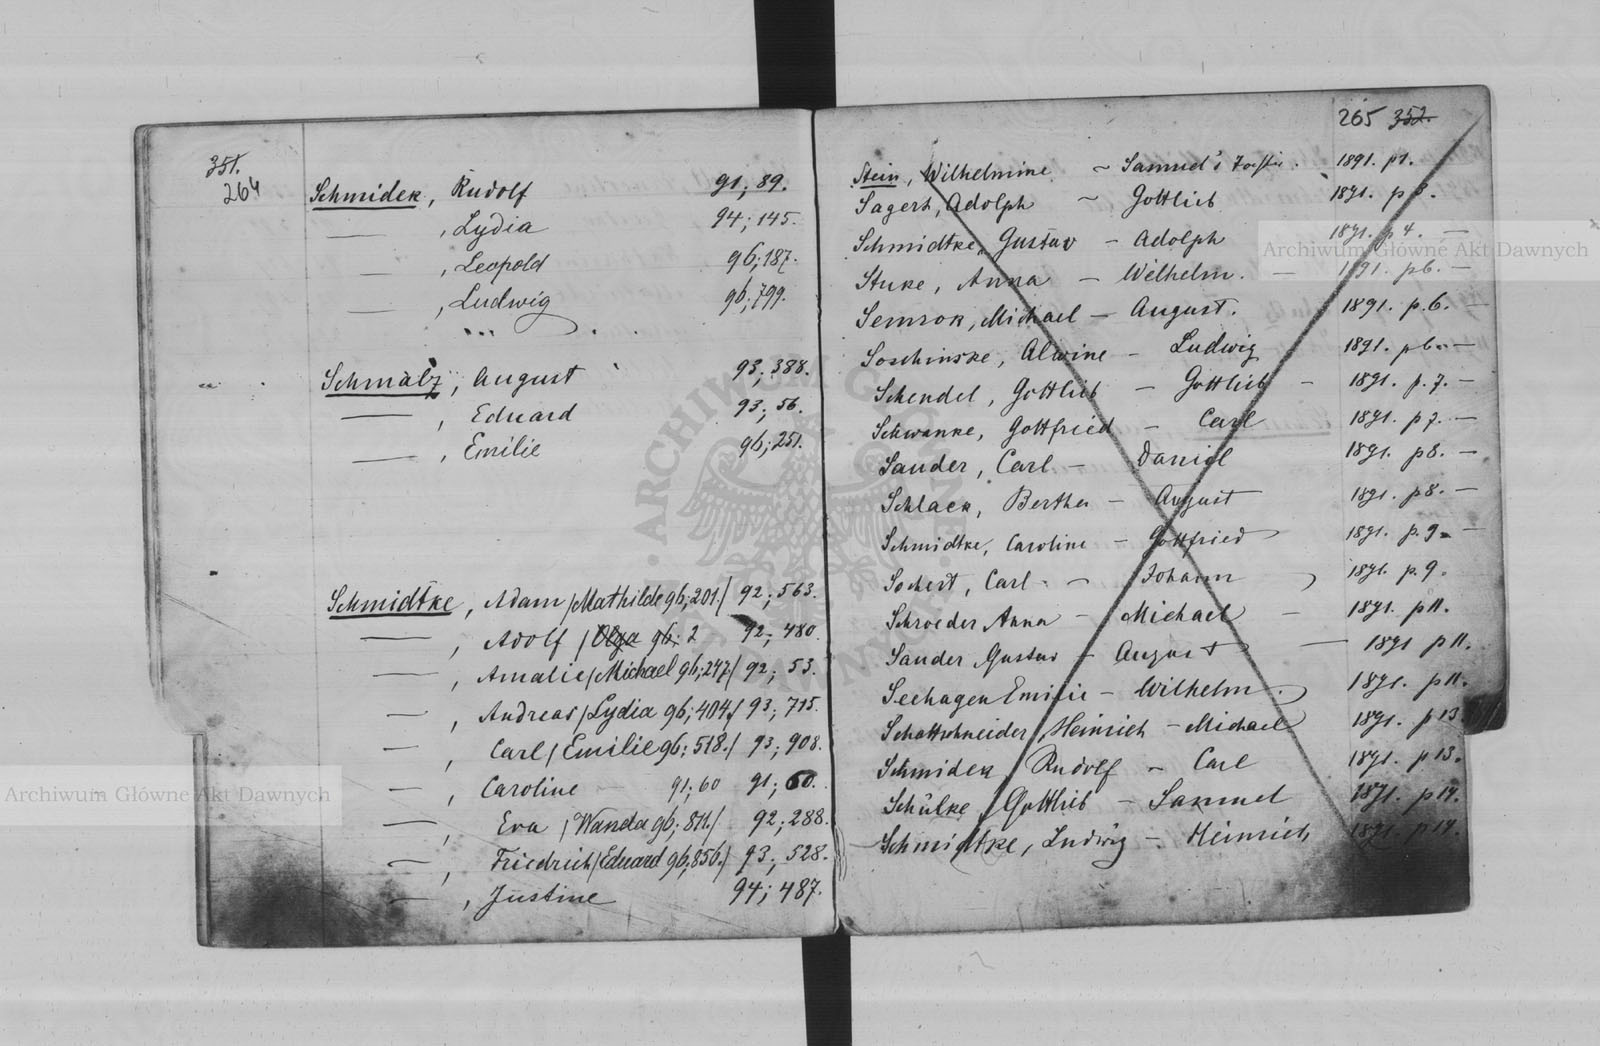 351.
264
Schmidek, Rudolf 91; 89.
—— , Lydia 94; 145.
—— , Leopold 96; 187.
—— , Ludwig 96; 799.
Schmalz, August 93; 388.
—— , Eduard 93; 56.
—— , Emilie 96; 251.
Schmidtke, Adam /Mathilde 96; 201./ 92; 563.
—— , Adolf / Olga 96; 2 92; 480.
—— , Amalie /Michael 96; 247/ 92; 53.
—— , Andreas /Lydia 96; 404./ 93; 715.
—— , Carl / Emilie 96; 518./ 93; 908.
—— , Caroline — 91; 60 91; 60.
—— , Eva / Wanda 96; 811./ 92; 288.
—— , Friedrich /Eduard 96; 856./ 93; 528.
—— , Justine 94; 487.
265 352.
Stein, Wilhelmine – Samuel's 1891. p 1.
Sagert, Adolph – Gottlieb 1891. p 3.
Schmidtke, Gustav – Adolph 1891. p 4. —
Stuke, Anna – Wilhelm. — 1891. p 6. —
Semrok, Michael – August. 1891. p. 6. —
Soschinske, Alwine – Ludwig 1891. p 6. —
Schendel, Gottlieb – Gottlieb – 1891. p. 7. —
Schwanke, Gottfried – Carl 1891. p 7. —
Sander, Carl – Daniel 1891. p 8. —
Schlack, Bertha – August 1891. p 8. —
Schmidtke, Caroline – Gottfried 1891. p. 9. —
Sochert, Carl. – Johann 1891. p. 9.
Schroeder Anna – Michael – 1891. p 11.
Sander Gustav – August — 1891 p 11.
Seehagen Emilie – Wilhelm. 1891. p 11.
Schattschneider, Heinrich – Michael 1891. p 13.
Schmidek, Rudolf – Carl 1891. p 13.
Schülke, Gottlieb – Samuel 1891. p 14.
Schmidtke, Ludwig – Heinrich 1891. p 14.
Archiwum Główne Akt Dawnych
Archiwum Główne Akt Dawnych